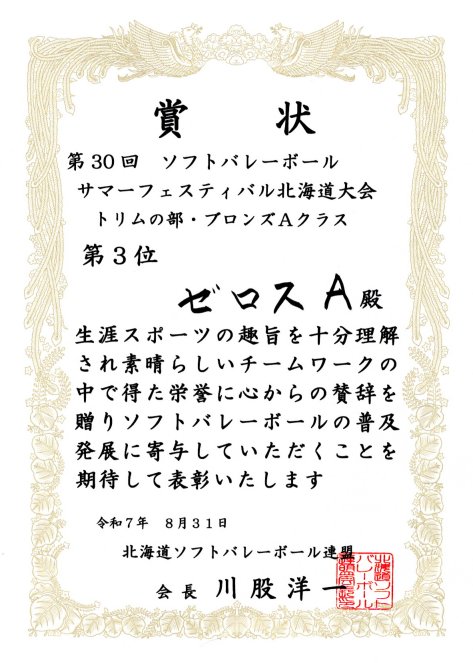 賞状
第30回 ソフトバレーボール
サマーフェスティバル北海道大会
トリムの部・ブロンズAクラス
第3位
ゼロスA殿
生涯スポーツの趣旨を十分理解
され素晴らしいチームワークの
中で得た栄誉に心からの賛辞を
贈りソフトバレーボールの普及
発展に寄与していただくことを
期待して表彰いたします
令和7年 8月31日
北海道ソフトバレーボール連盟
会長 川股洋一
北海道ソフト
バレーボール